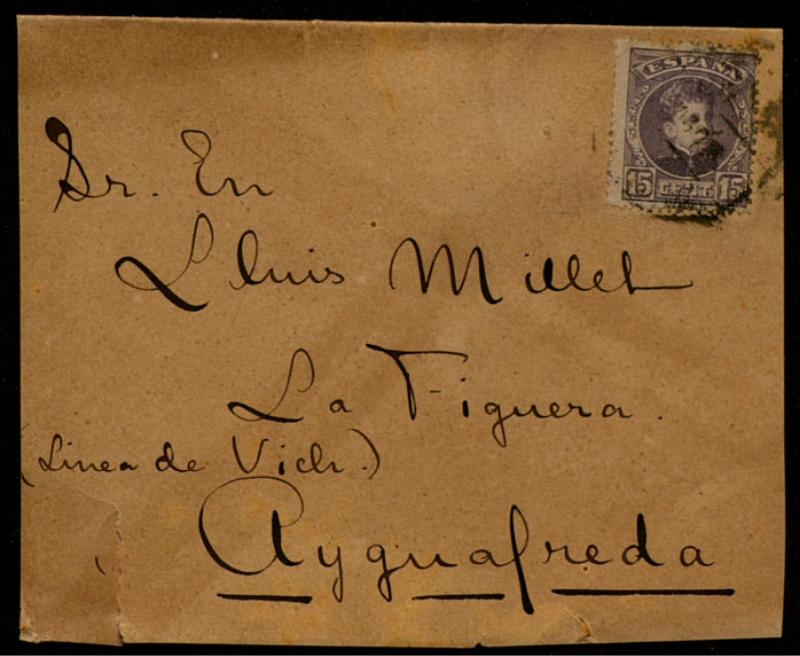 ESPAÑA
15 CENT. 15
Sr. En
Lluis Millet
La Figuera.
(Linea de Vich.)
Ayguafreda